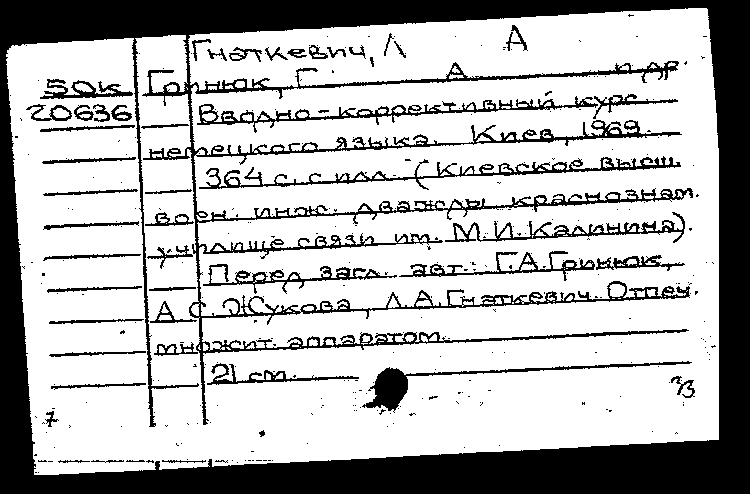 Гнаткевич, Л А
50к Гринюк, Г А и др.
20636 Вводно-коррективный курс
немецкого языка. Киев, 1969.
364 с. с илл. (Киевское высш.
воен. инж. дважды краснознам.
училище связи им. М.И.Калинина).
Перед загл. авт.: Г.А.Гринюк,
А.С.Жукова, Л.А.Гнаткевич. Отпеч.
множит. аппаратом.
21 см.